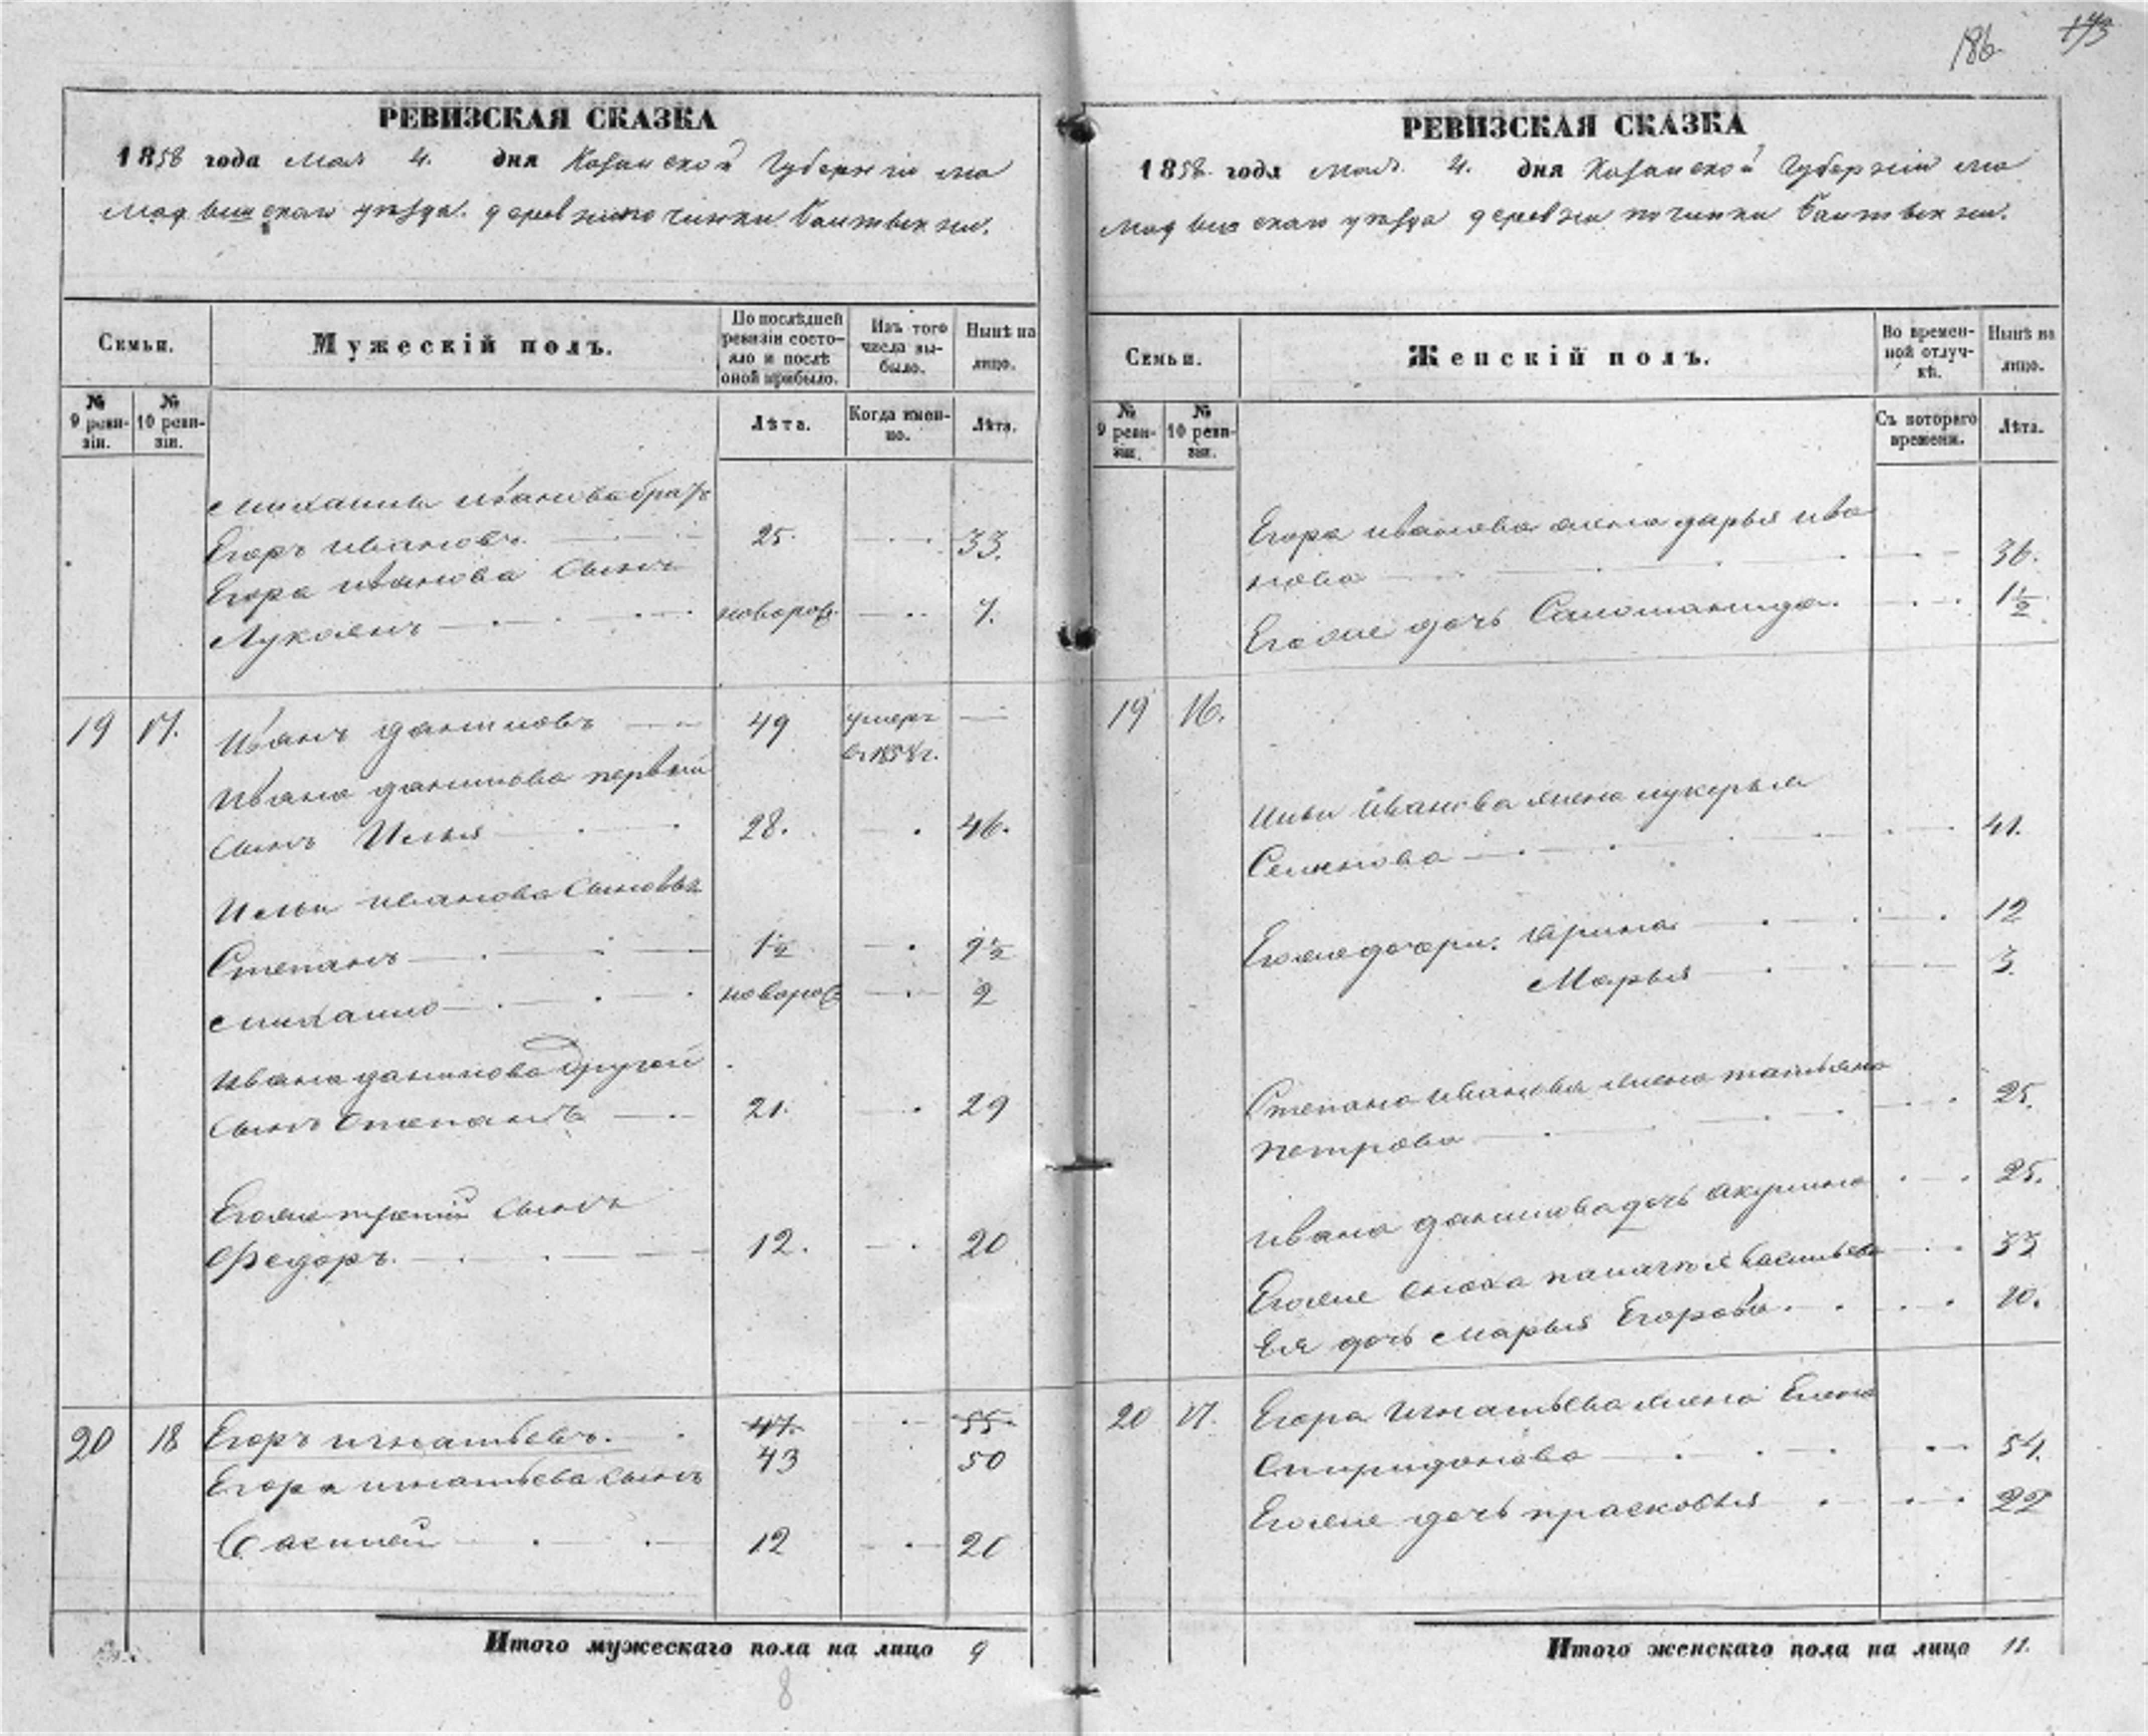 186. 173
РЕВИЗСКАЯ СКАЗКА
1858 года мая 4. дня Казанской Губерніи ма
мадышскаго уезда. деревни починки
Семьи.
Мужескій полъ.
По послѣдней ревизіи состояло и послѣ оной прибыло.
Изъ того числа выбыло.
Нынѣ на лицо.
№ 9 ревизіи.
№ 10 ревизіи.
Лѣта.
Когда именно.
Лѣта.
Михаила иванова братъ
Егоръ ивановъ. 25. 33.
Егора иванова сынъ
Лукоянъ новорож. 7.
19 17. Иванъ даниловъ 49 умеръ
въ 1854 г.
Ивана данилова первый
сынъ Илья 28. 46.
Ильи иванова сыновья
Степанъ 1½ 9½
михаило новорож 2
Ивана данилова другой
сынъ степанъ 21. 29
Егоже третий сынъ
Федоръ. 12. 20
20 18 Егоръ игнатьевъ. 47. 55.
43 50
Егора игнатьева сынъ
Василей 12 20
Итого мужескаго пола на лицо 9
8
РЕВИЗСКАЯ СКАЗКА
1858 года мая 4. дня Казанской Губерніи ма
мадышскаго уезда деревни починки
Семьи.
Женскій полъ.
Во временной отлучкѣ.
Нынѣ на лицо.
№ 9 ревизіи.
№ 10 ревизіи.
Съ котораго времени.
Лѣта.
Егора иванова жена дарья ива
нова 36.
Егоже дочь Саломанида. 1½
19 16.
Ильи Иванова жена лукерья
Семенова 41.
Егоже дочери: Ирина 12
Марья 3.
Степана иванова жена татьяна
петрова 25.
ивана данилова дочь акулина 25.
Егоже сноха васильева 33
Ея дочь марья Егорова. 10.
20 17. Егора Игнатьева жена Елена
спиридонова 54.
Егоже дочь прасковья 22
Итого женскаго пола на лицо 11.